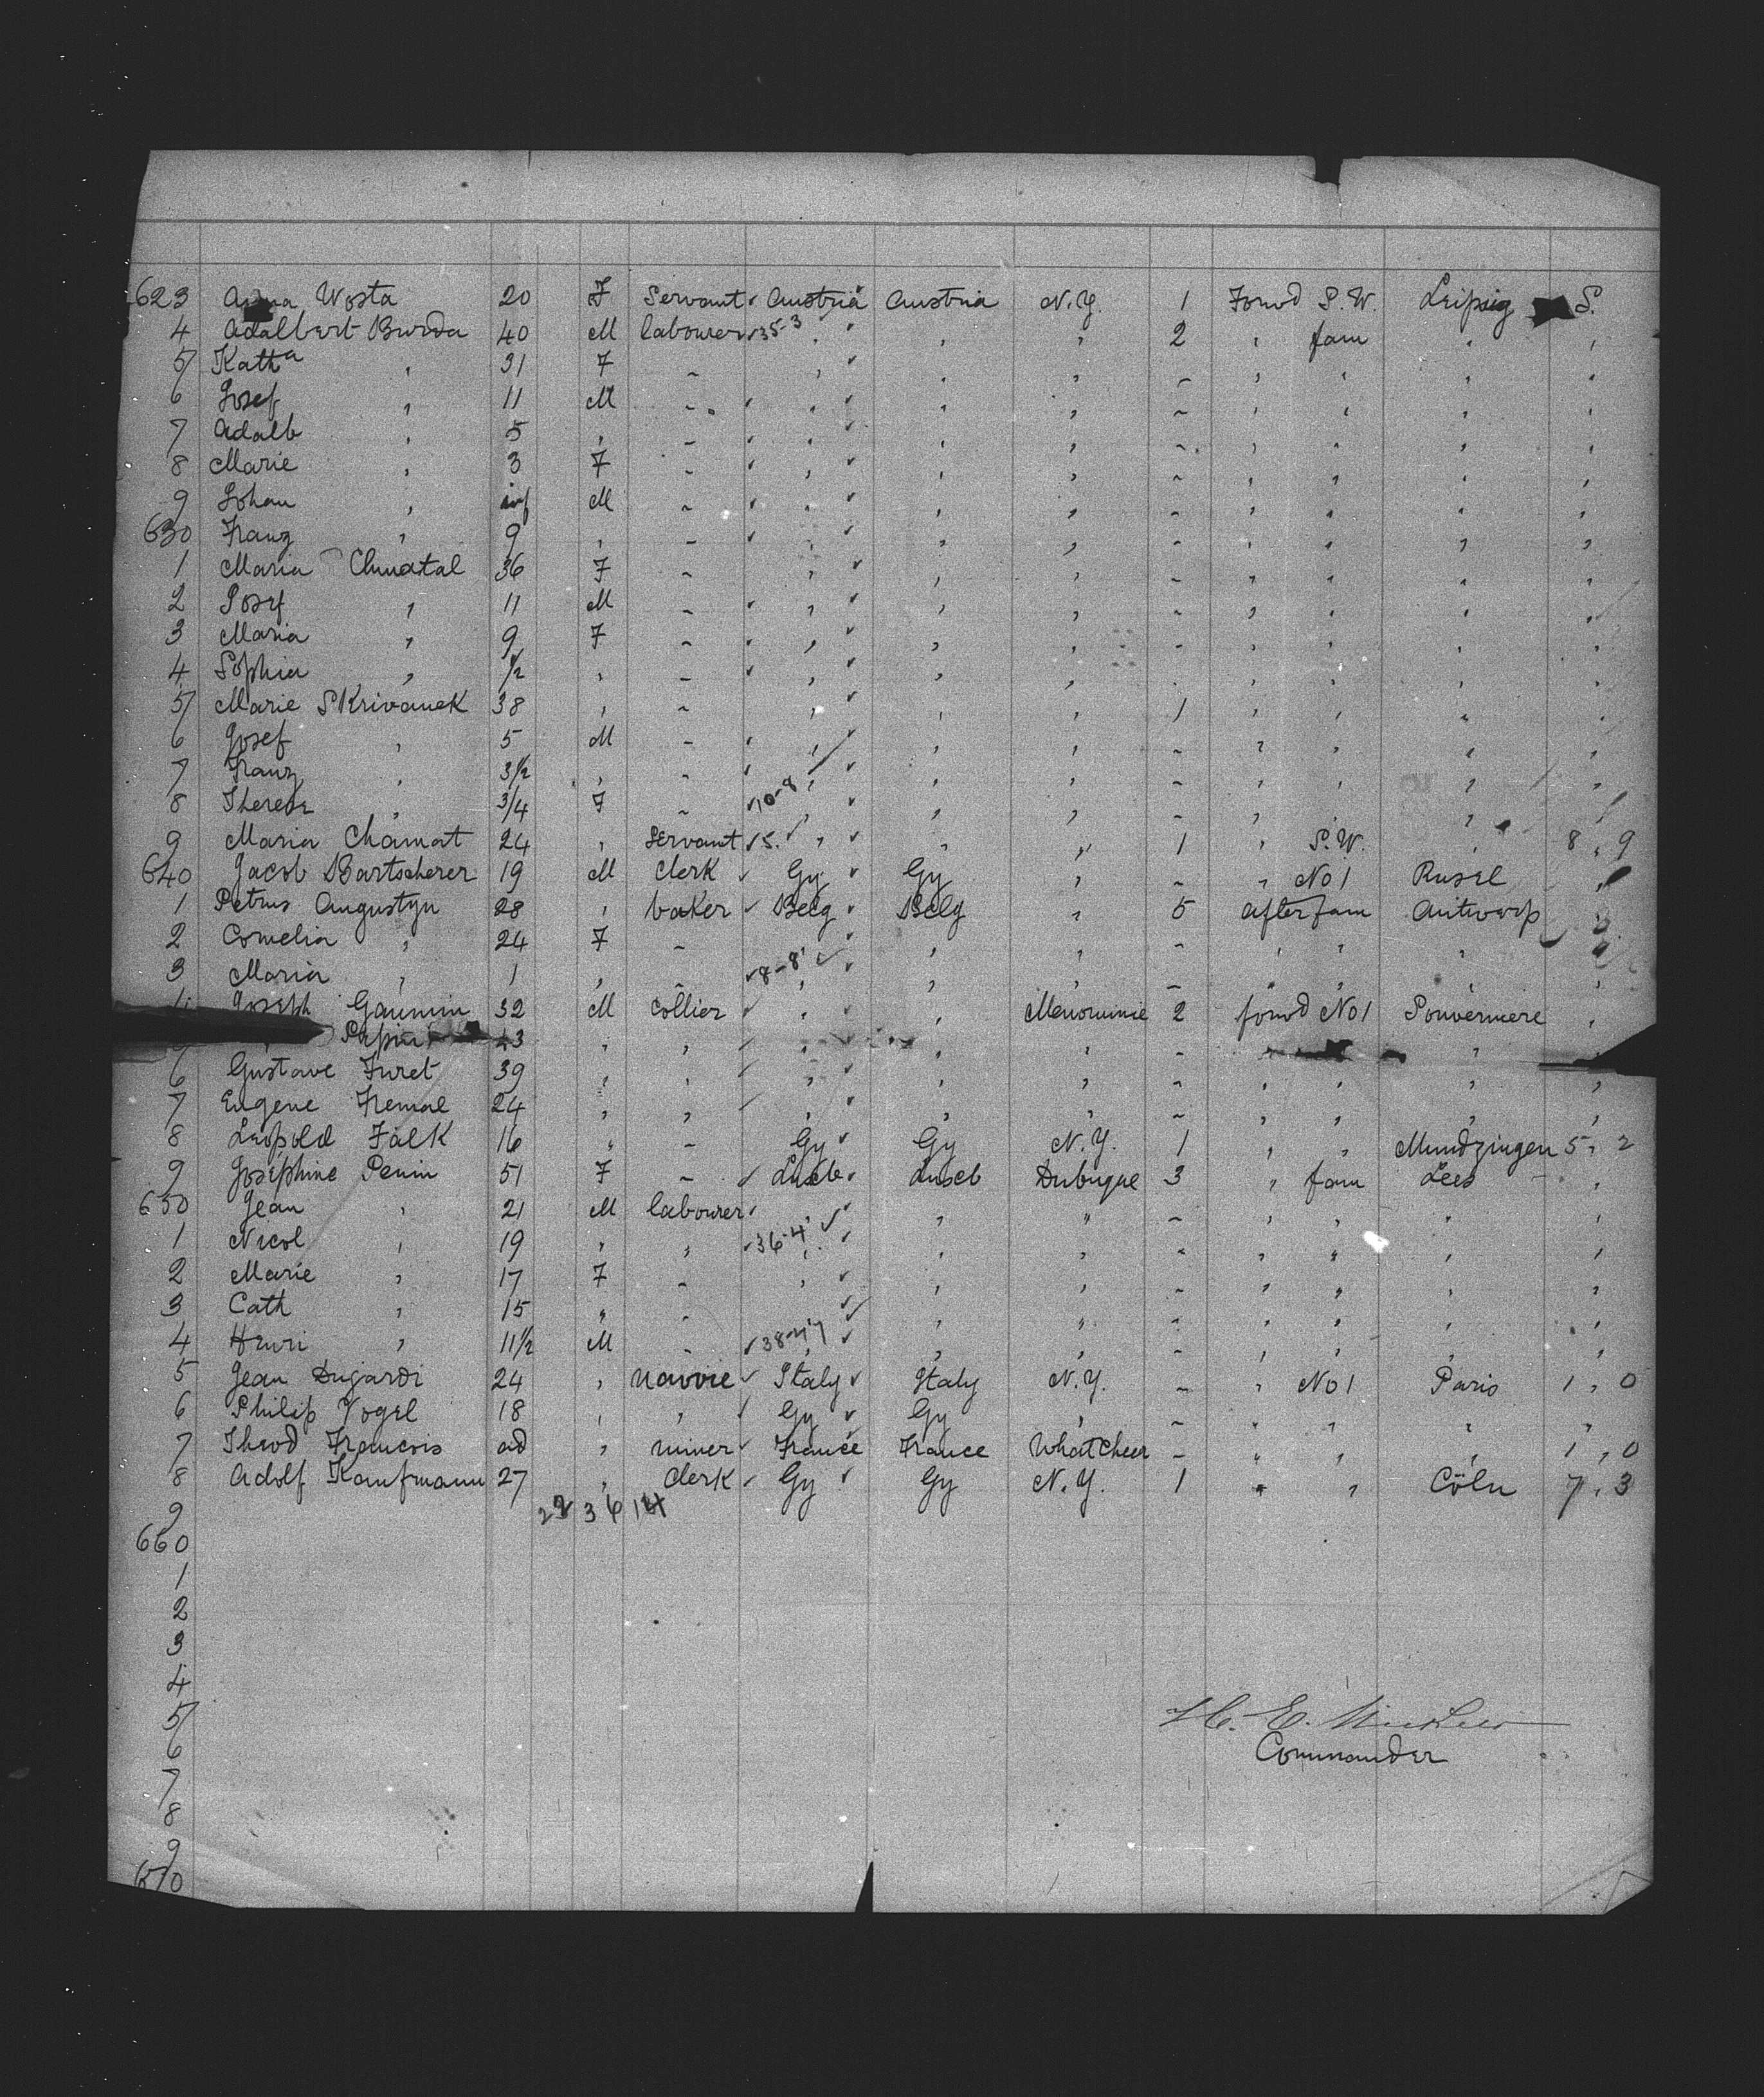 623 Anna Wosta 20 F Servant Austria Austria N.Y. 1 Forwd S.W. Leipsig S.
4 Adalbert Burda 40 M labourer 35-3 , , , 2 , fam , ,
5 Kath a , 31 F - , , , - , , , ,
6 Josef , 11 M - , , , - , , , ,
7 Adalb , 5 , - , , , - , , , ,
8 Marie , 3 F - , , , - , , , ,
9 Johan , inf M - , , , - , , , ,
630 Franz , 9 , - , , , - , , , ,
1 Maria Chmatal 36 F - , , , - , , , ,
2 Josef , 11 M - , , , - , , , ,
3 Maria , 9 F - , , , - , , , ,
4 Sophia , 1/2 , - , , , , , , ,
5 Marie Skrivanek 38 , - , , , 1 , , , ,
6 Josef , 5 M - , , , - , , , ,
7 Franz , 3 1/2 , - , , , - , , , ,
8 Therese , 3/4 F - 10-8 , , , - , , ,
9 Maria Chamat 24 , Servant 5. , , , 1 , S.W. , 8 , 9
640 Jacob Bartscherer 19 M Clerk Gy Gy , - , No 1 Rusel ,
1 Petrus Augustyn 28 , baker Belg Belg , 5 After fam Antwerp
2 Cornelia , 24 F - , , , - , , ,
3 Maria , 1 , 8-8 , , , - , , , ,
Joseph Gaumin 32 M Collier , , Menominie 2 forwd No 1 Souvermere ,
Papin 43 , , , , , - ,
6 Gustave Furet 39 , , , , , - , , , ,
7 Eugene Fremal 24 , , , , , - , , , ,
8 Leopold Falk 16 , - Gy Gy N.Y. 1 , , Mundzingen 5 , 2
9 Josephine Penin 51 F - Luxb Luxb Dubuque 3 , fam Lees - ,
650 Jean , 21 M labourer , , " - , , , ,
1 Nicol , 19 , , 36-4 , , , - , , , ,
2 Marie , 17 F - , , , - , , , ,
3 Cath , 15 , - , , - , , , ,
4 Henri , 11 1/2 M - , , , - , , , ,
5 Jean Dujardi 24 , navvie Italy Italy N.Y. - , No 1 Paris 1 , 0
6 Philip Vogel 18 , , Gy Gy , - , , , ,
7 Theod Francois ad , miner France France What Cheer - , , , 1 , 0
8 Adolf Kaufmann 27 , Clerk Gy Gy N.Y. 1 , , Cöln 7 , 3
9
660
1
2
3
4
5
6
7
8
9
670
H. E.
Commander